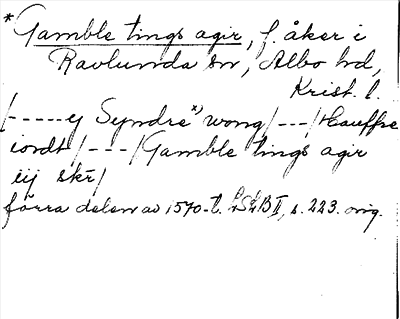 *Gamble tings agir, f. åker i
Ravlunda sn, Albo hd,
Krist. l.
/-----ej Syndre *) wong/---/Hauffre
iordt/---/Gamble tings agir
eij skr/
förra delen av 1570-t. LSkB II, s. 223. orig.